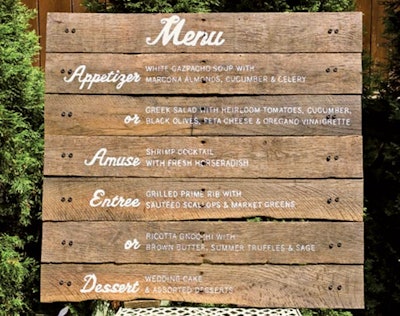 Menu
Appetizer WHITE GAZPACHO SOUP WITH
MARCONA ALMONDS, CUCUMBER & CELERY
or GREEK SALAD WITH HEIRLOOM TOMATOES, CUCUMBER,
BLACK OLIVES, FETA CHEESE & OREGANO VINAIGRETTE
Amuse SHRIMP COCKTAIL
WITH FRESH HORSERADISH
Entree GRILLED PRIME RIB WITH
SAUTEED SCALLOPS & MARKET GREENS
or RICOTTA GNOCCHI WITH
BROWN BUTTER, SUMMER TRUFFLES & SAGE
Dessert WEDDING CAKE
& ASSORTED DESSERTS